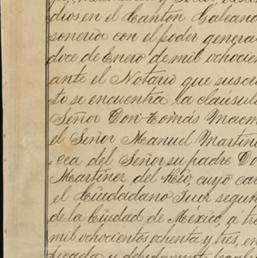 dios en el Cantón Galeana
sonería con el poder genera
doce de Enero de mil ochocien
ante el Notario que suscri
to se encuentra la cláusula
Señor Don Tomás
el Señor Manuel Martine
eca del Señor su padre Do
Martinez del Rio, cuyo ca
el Ciudadano Juez segun
de la Ciudad de México, á tre
mil ochocientos ochenta y tres, en